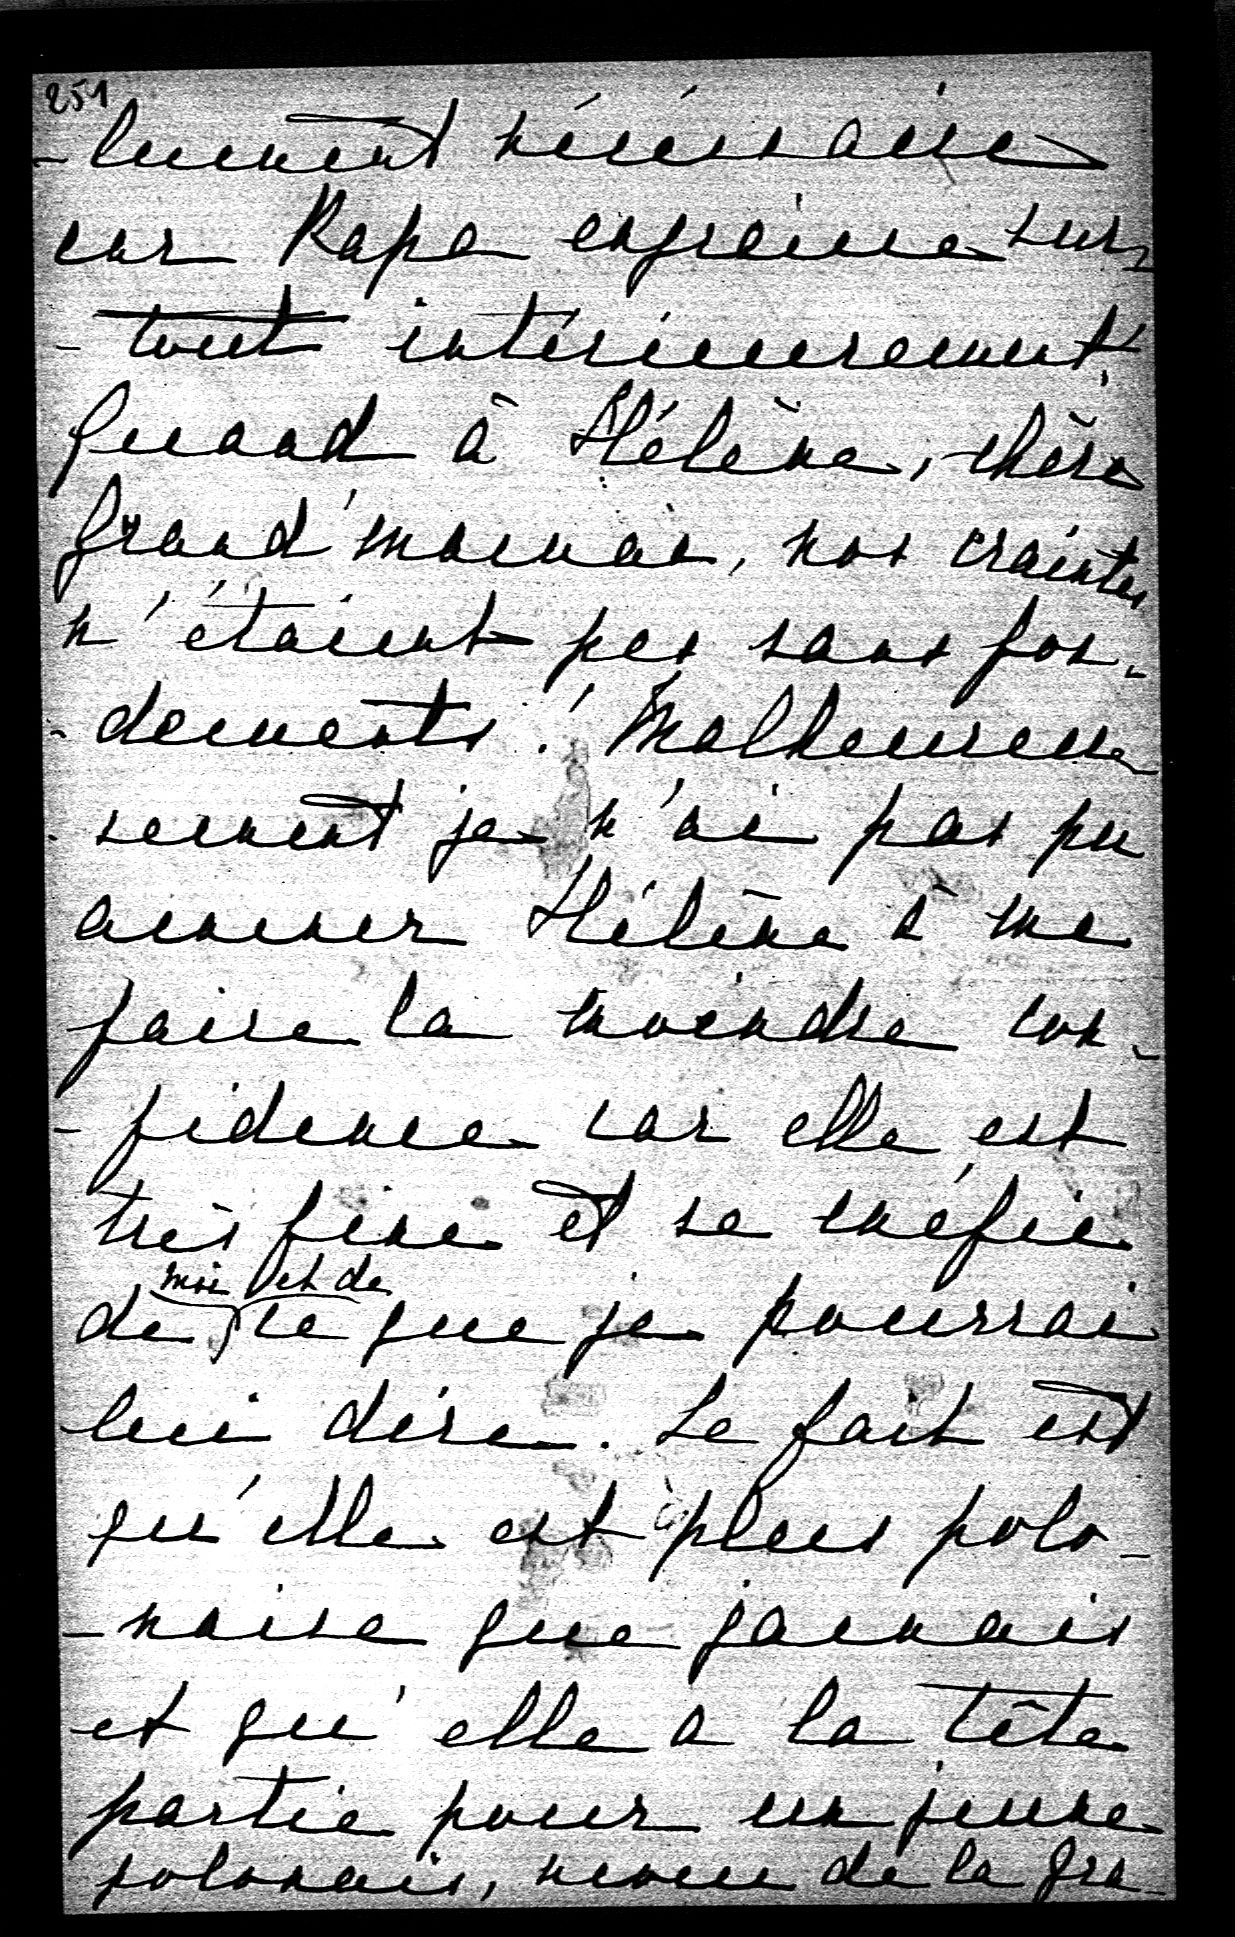 251
-lument nécessaire
car Papa engraine sur-
-tout intérieurement.
Quand à Hélène, chère
Grand'maman, nos craintes
n'étaient pas sans fon-
-dements ! Malheureu-
-sement je n'ai pas pu
amener Hélène à me
faire la moindre con-
-fidence car elle est
très fine et se méfie
de moi et de ce que je pourrai
lui dire. Le fait est
qu'elle est plus polo-
-naise que jamais
et qu'elle a la tête
partie pour un jeune
polonais, neveu de la Gra-